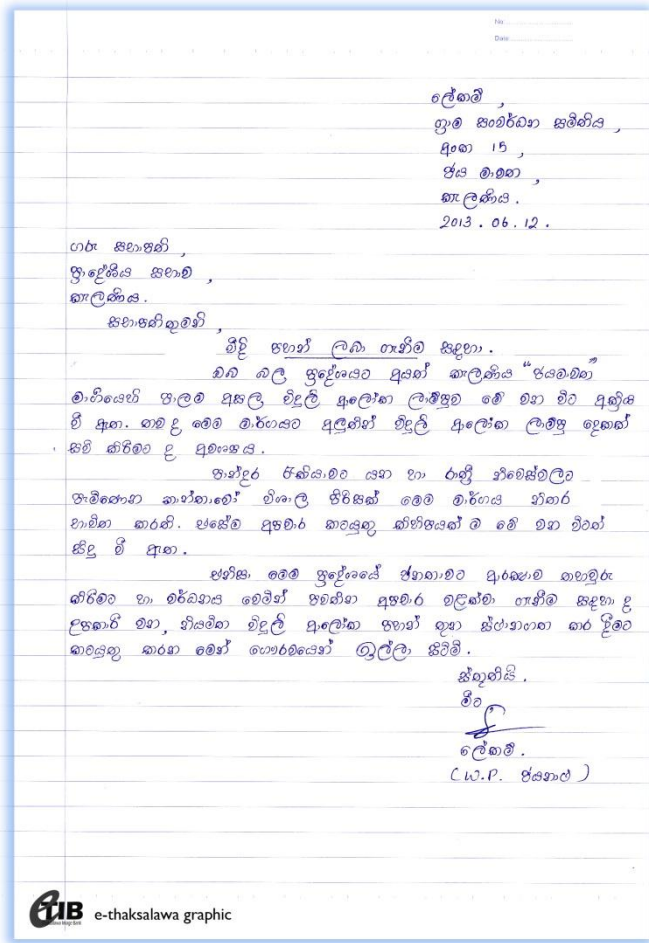 No:
Date
ලේකම් ,
ග්‍රාම සංවර්ධන සමිතිය ,
අංක 15 ,
ජය මාවත ,
කැලණිය .
2013 . 06 . 12 .
ගරු සභාපති ,
ප්‍රාදේශීය සභාව ,
කැලණිය .
සභාපතිතුමනි ,
වීදි පහන් ලබා ගැනීම සඳහා .
ඔබ බල ප්‍රදේශයට අයත් කැලණිය "ජයමාවත"
මාර්ගයෙහි පාලම අසල විදුලි ආලෝක ලාම්පුව මේ වන විට අක්‍රිය
වී ඇත. තව ද මෙම මාර්ගයට අලුතින් විදුලි ආලෝක ලාම්පු දෙකක්
සවි කිරීමට ද අවශ්‍යය .
පාන්දර රැකියාවට යන හා රාත්‍රී නිවෙස්වලට
පැමිණෙන කාන්තාවෝ විශාල පිරිසක් මෙම මාර්ගය නිතර
භාවිත කරති. එසේම අපචාර කටයුතු කිහිපයක් ම මේ වන විටත්
සිදු වී ඇත .
එනිසා මෙම ප්‍රදේශයේ ජනතාවට ආරක්‍ෂාව තහවුරු
කිරීමට හා වර්ධනය වෙමින් පවතින අපචාර වළක්වා ගැනීම සඳහා ද
උපකාරී වන , නියමිත විදුලි ආලෝක පහන් තුන ස්ථානගත කර දීමට
කටයුතු කරන මෙන් ගෞරවයෙන් ඉල්ලා සිටිමි .
ස්තූතියි .
මීට
ලේකම් .
( W.P. ජයනාථ )
eTIB e-thaksalawa graphic